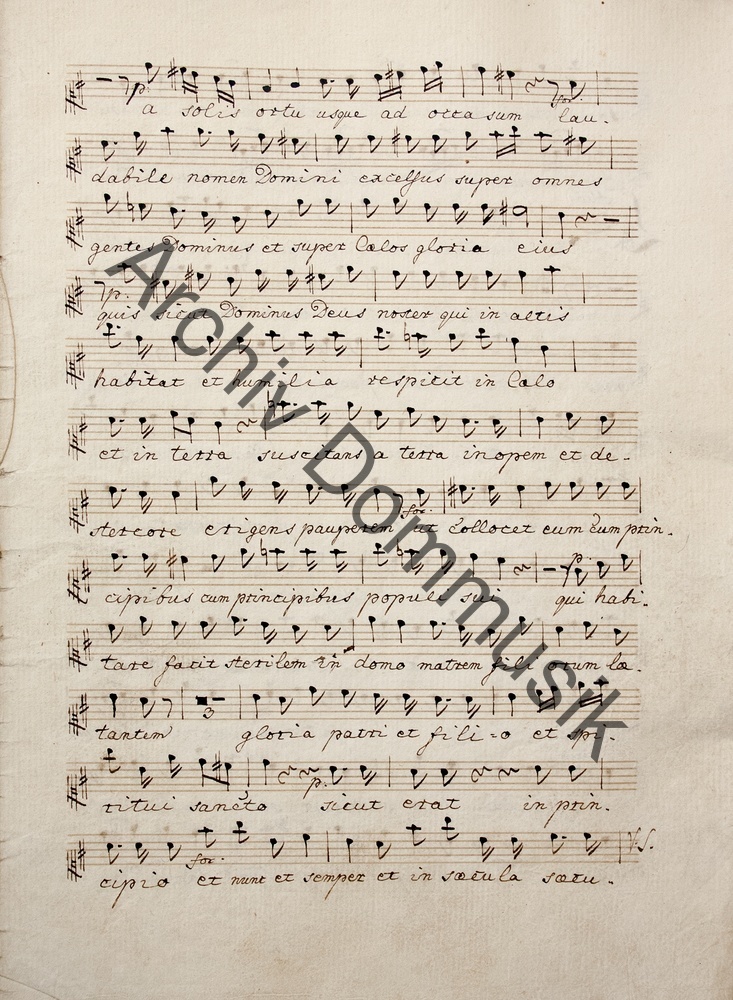 p.
a solis ortu usque ad occasum lau-
for.
dabile nomen Domini excelsus super omnes
gentes Dominus et super Cœlos gloria eius
p.
quis sicut Dominus Deus noster qui in altis
habitat et humilia respicit in Cœlo
et in terra suscitans a terra inopem et de-
stercore erigens pauperem ut collocet eum cum prin-
for.
cipibus cum principibus populi sui qui habi-
p.
tare facit sterilem in domo matrem fili orum læ-
tantem gloria patri et fili-o et spi-
3
ritui sancto sicut erat in prin-
p.
cipio et nunc et semper et in sæcula sæcu-
for.
V.S.
Archiv Dommusik